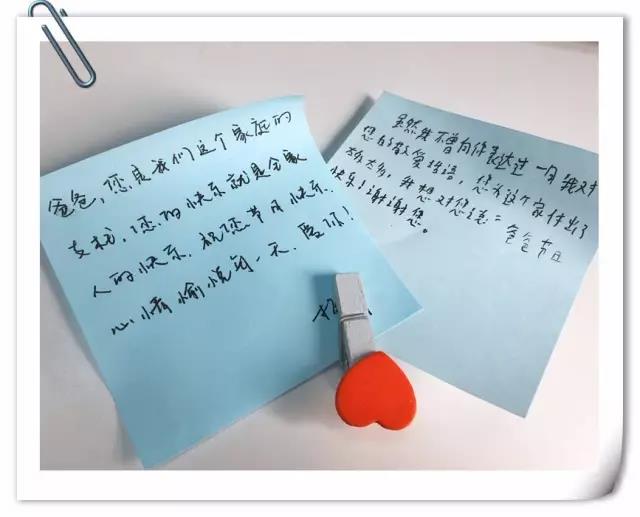 爸爸,您是我们这个家庭的
支柱,您的快乐就是全家
人的快乐,祝您节日快乐,
心情愉悦每一天,爱你!
虽然我不曾向你表达过一句我对
您的敬爱话语,您为这个家付出了
太多太多,我想对您说:爸爸节日
快乐!谢谢您。